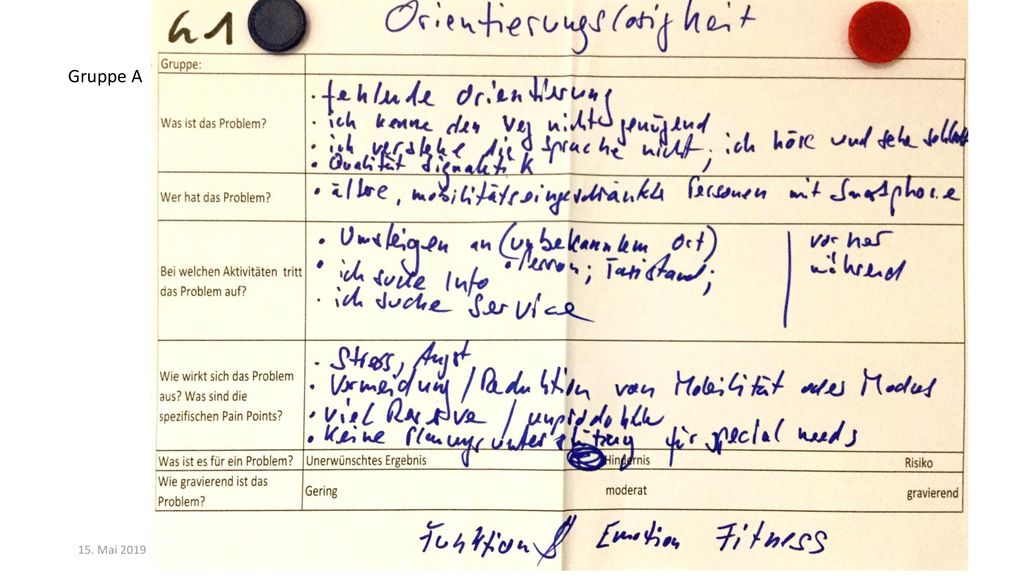 G1
Orientierungslosigkeit
Gruppe A
Gruppe:
Was ist das Problem?
· fehlende Orientierung
· ich kenne den Weg nicht genügend
· ich verstehe die Sprache nicht; ich höre und sehe schlecht
· Qualität Signaletik
Wer hat das Problem?
· ältere, mobilitätseingeschränkte Personen mit Smartphone
Bei welchen Aktivitäten tritt
das Problem auf?
· Umsteigen an (unbekanntem Ort)
· ich suche Info
· Person; Taxistand;
· ich suche Service
vorher
während
Wie wirkt sich das Problem
aus? Was sind die
spezifischen Pain Points?
· Stress, Angst
· Vermeidung / Reduktion von Mobilität oder Modus
· viel Reserve /
· keine Planungsunterstützung für special needs
Was ist es für ein Problem?
Unerwünschtes Ergebnis
Hindernis
Risiko
Wie gravierend ist das
Problem?
Gering
moderat
gravierend
Funktion Emotion Fitness
15. Mai 2019